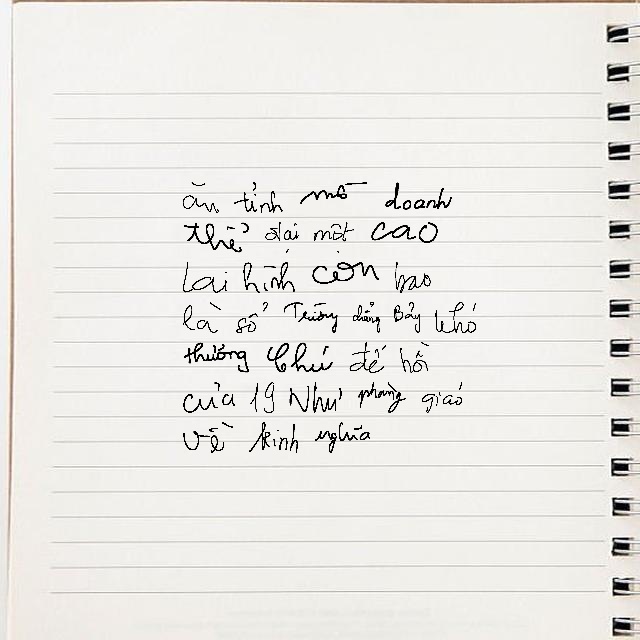 ăn tỉnh mô doanh
thể dài một cao
Lại hình còn bao
là sổ Trường chẳng Bảy khó
thưởng Chú để hồi
của 19 Như phòng giao
về kinh nghĩa